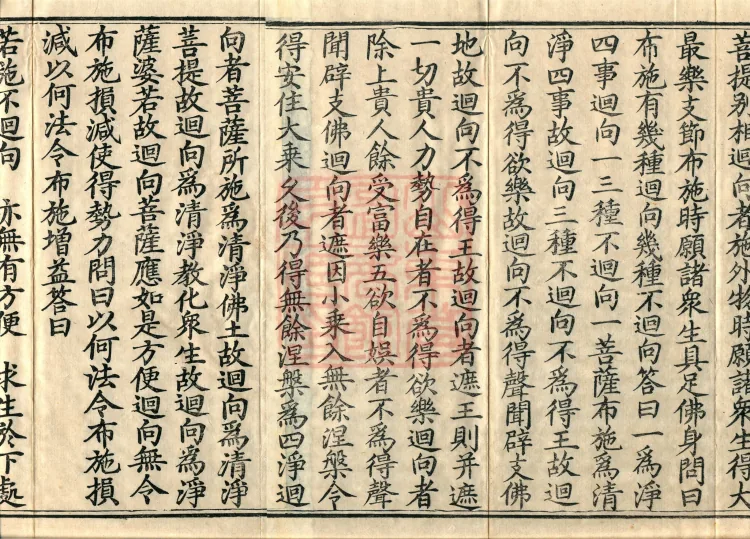 菩提別相迴向者施外物時願諸衆生得大
最樂支節布施時願諸衆生具足佛身問曰
布施有幾種迴向幾種不迴向答曰一爲淨
四事迴向一三種不迴向一菩薩布施爲清
淨四事故迴向三種不迴向不爲得王故迴
向不爲得欲樂故迴向不爲得聲聞辟支佛
地故迴向不爲得王故迴向者遮王則并遮
一切貴人力勢自在者不爲得欲樂迴向者
除上貴人餘受富樂五欲自娛者不爲得聲
聞辟支佛迴向者遮因小乗入無餘涅槃令
得安住大乗久後乃得無餘涅槃爲四淨迴
向者菩薩所施爲清淨佛土故迴向爲清淨
菩提故迴向爲清淨教化衆生故迴向爲淨
薩婆若故迴向菩薩應如是方便迴向無令
布施損減使得勢力問曰以何法令布施損
減以何法令布施增益答曰
若施不迴向 亦無有方便 求生於下處